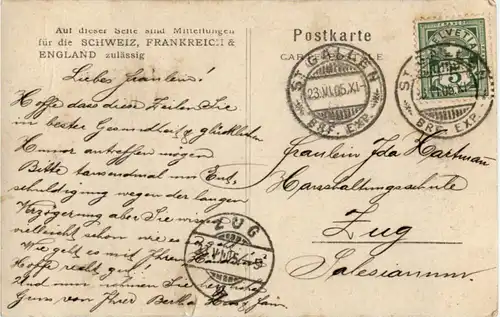 Auf dieser Seite sind Mitteilungen
für die SCHWEIZ, FRANKREICH &
ENGLAND zulässig
Postkarte
HELVETIA
5
ST. GALLEN
23.VI.05.XI
BRF. EXP.
ST. GALLEN
BRF. EXP.
Liebes Fräulein!
Hoffe dass diese Zeilen Sie
in bester Gesundheit & glücklichem
Humor antreffen mögen
Bitte tausendmal um Ent-
schuldigung wegen der langen
Verzögerung aber Sie
vielleicht schon wie es
Wie geht es mit Ihren
Hoffe recht gut!
Und nun nehmen Sie
Gruss von Ihrer Bertha
ZUG
Fräulein Ida Hartmann
Haushaltungsschule
Zug
Salesianum.